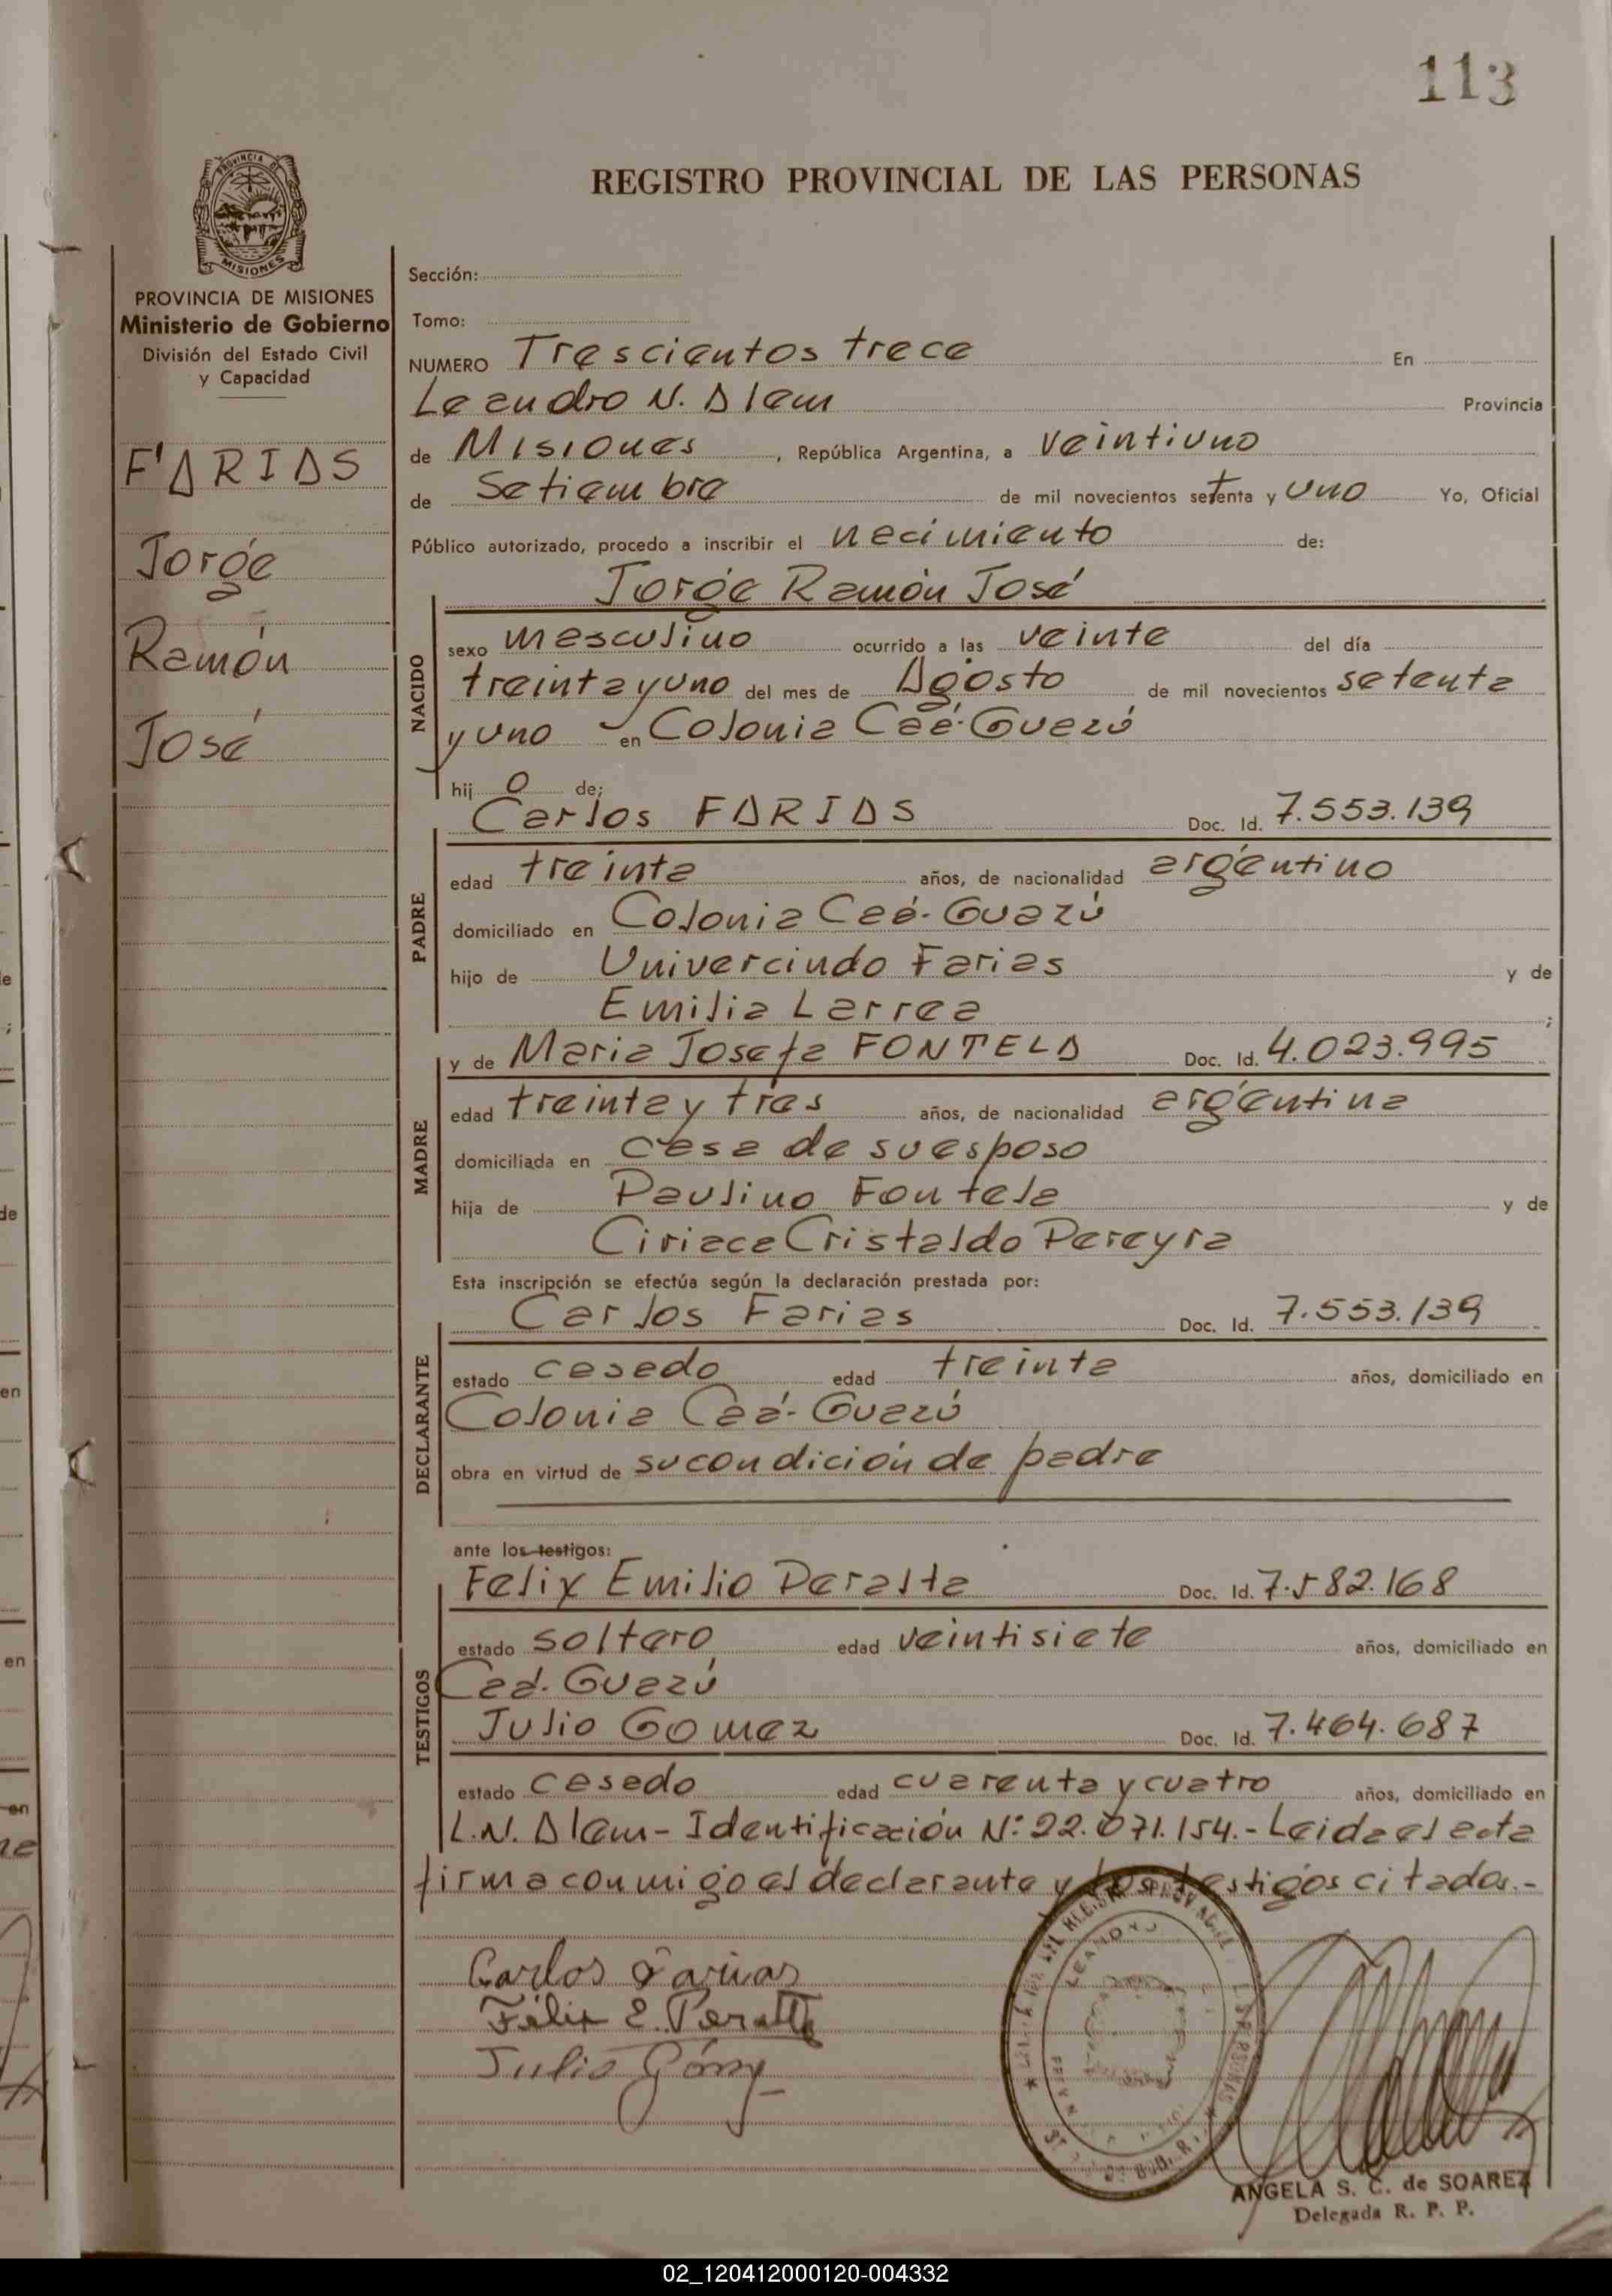 113
PROVINCIA DE
MISIONES
REGISTRO PROVINCIAL DE LAS PERSONAS
PROVINCIA DE MISIONES
Ministerio de Gobierno
División del Estado Civil
y Capacidad
FARIAS
Jorge
Ramón
José
Sección:
Tomo:
NUMERO Trescientos trece En
Leandro N. Alem Provincia
de Misiones, República Argentina, a veintiuno
de Setiembre de mil novecientos setenta y uno Yo, Oficial
Público autorizado, procedo a inscribir el nacimiento de:
Jorge Ramón José
NACIDO
sexo masculino ocurrido a las veinte del día
treinta y uno del mes de Agosto de mil novecientos setenta
y uno en Colonia Caá-Guazú
hijo de;
Carlos FARIAS Doc. Id. 7.553.139
PADRE
edad treinta años, de nacionalidad argentino
domiciliado en Colonia Caá-Guazú
hijo de Univercindo Farias y de
Emilia Larrea ;
y de Maria Josefa FONTELA Doc. Id. 4.023.995
MADRE
edad treinta y tres años, de nacionalidad argentina
domiciliada en casa de su esposo
hija de Paulino Fontela y de
Ciriaca Cristaldo Pereyra
Esta inscripción se efectúa según la declaración prestada por:
Carlos Farias Doc. Id. 7.553.139
DECLARANTE
estado casado edad treinta años, domiciliado en
Colonia Caá-Guazú
obra en virtud de su condición de padre
ante los testigos:
Felix Emilio Peralta Doc. Id. 7.582.168
TESTIGOS
estado soltero edad veintisiete años, domiciliado en
Caá-Guazú
Julio Gomez Doc. Id. 7.464.687
estado casado edad cuarenta y cuatro años, domiciliado en
L.N. Alem - Identificación Nº 22.071.154.- Leida el acta
firma conmigo el declarante y los testigos citados.-
Carlos Farias
Félix E. Peralta
Julio Gómz
ANGELA S. C. de SOAREZ
Delegada R. P. P.
02_120412000120-004332